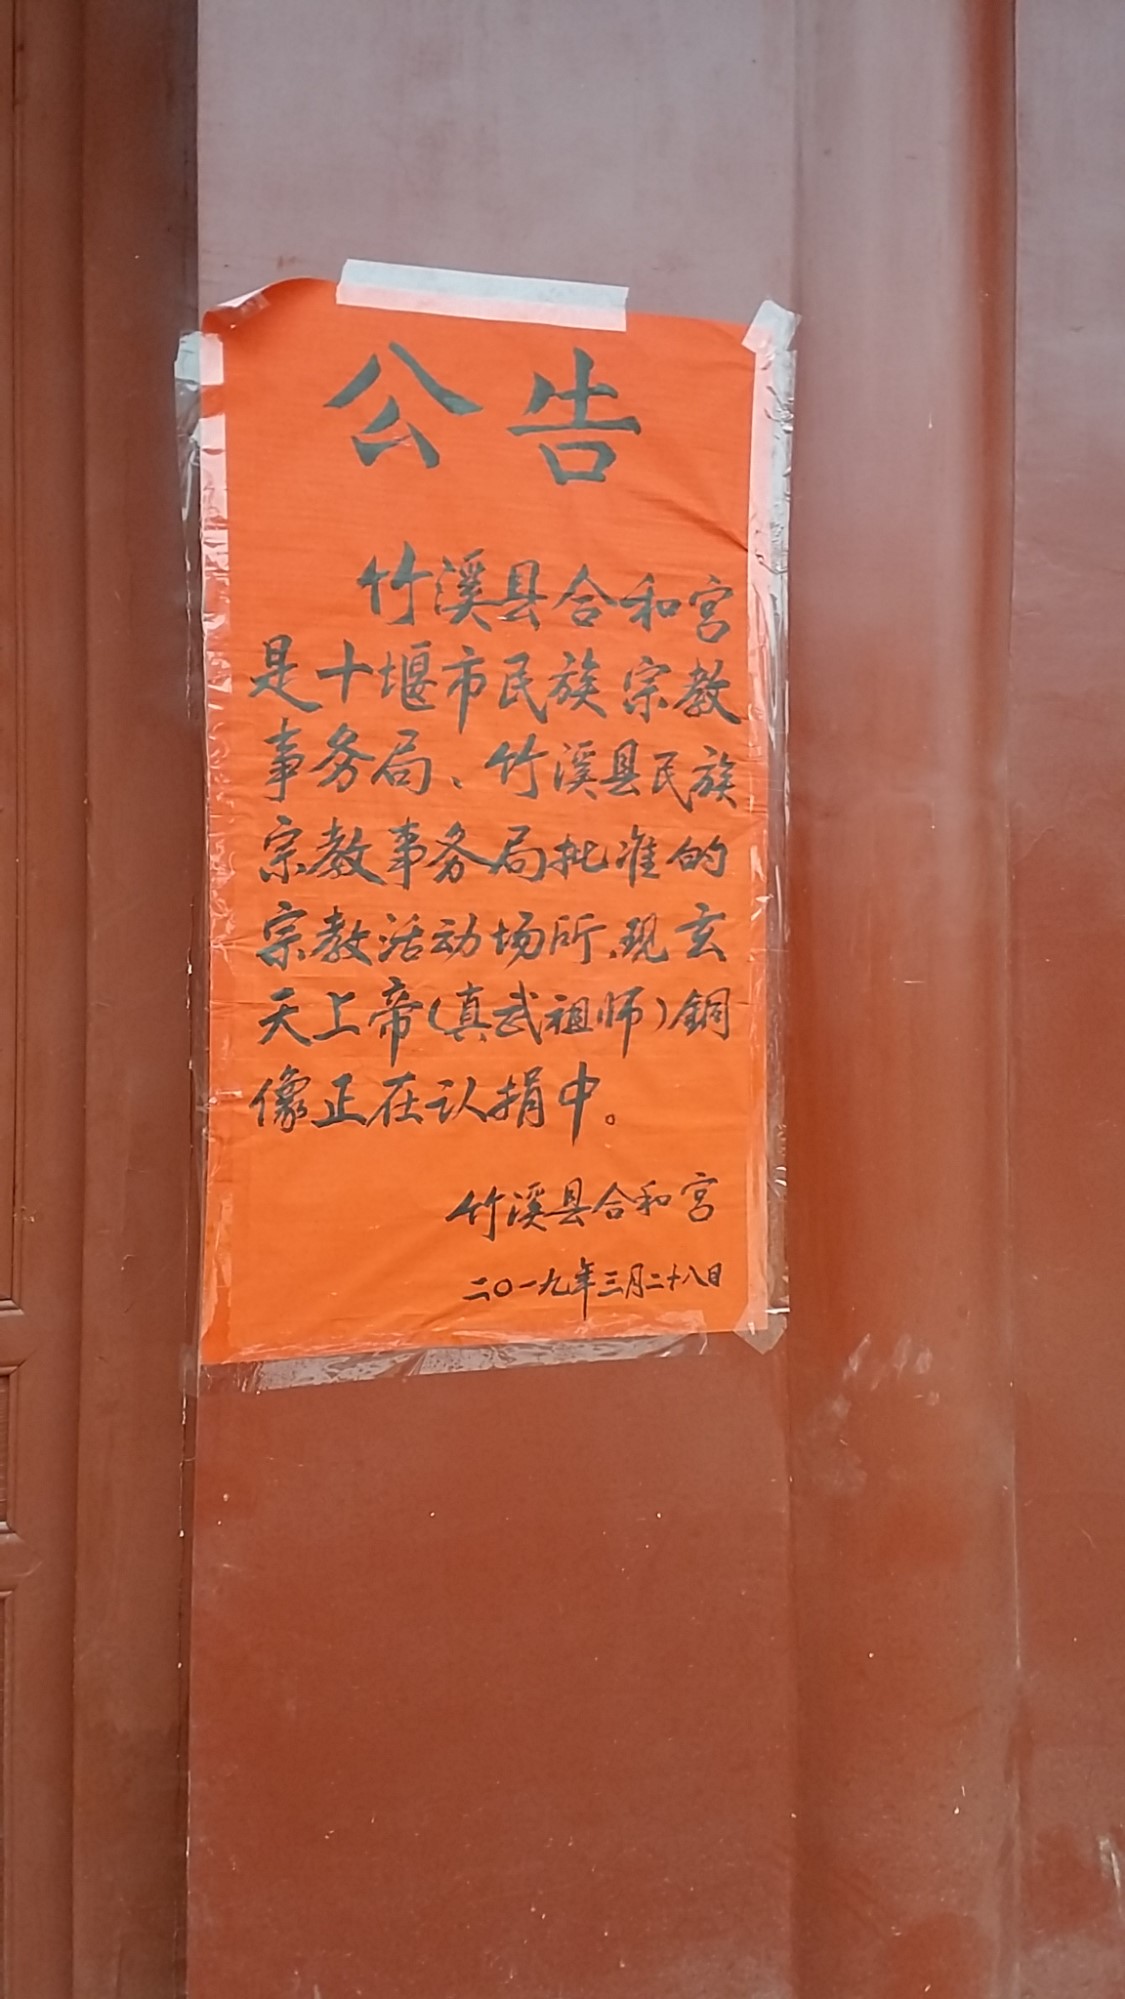 公告
竹溪县合和宫
是十堰市民族宗教
事务局、竹溪县民族
宗教事务局批准的
宗教活动场所,现玄
天上帝(真武祖师)銅
像正在认捐中。
竹溪县合和宫
二〇一九年三月二十八日